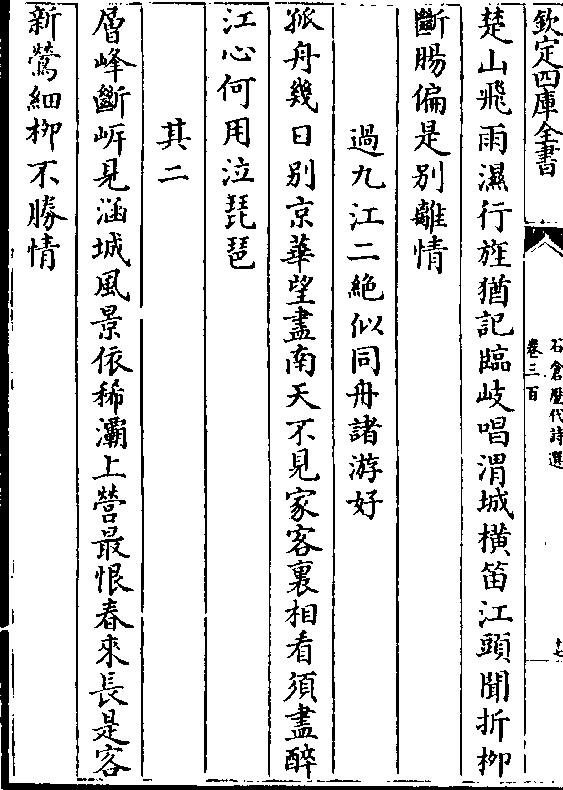 欽定四庫全書
石倉歷代詩選
卷三百
十七
楚山飛雨濕行旌猶記臨岐唱渭城橫笛江頭聞折柳
斷腸偏是別離情
過九江二絶似同舟諸游好
孤舟幾日別京華望盡南天不見家客裏相看須盡醉
江心何用泣琵琶
其二
層峰斷㟁見涵城風景依稀灞上營最恨春來長是客
新鶯細柳不勝情